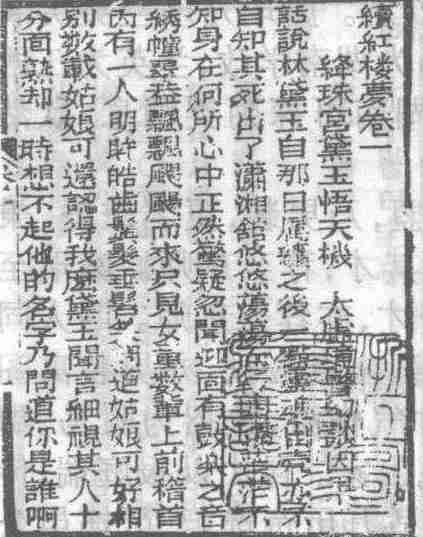 續紅楼夢卷一
絳珠宮黛玉悟天機　太虛境警幻談因
話說林黛玉自那日屬纊之後一點靈出壳亦不
自知其死出了瀟湘舘悠悠蕩蕩茫不
知身在何所心中正然驚疑忽聞迎面有鼓樂之音
綉幢霞葢飄飄颺颺而來只見女童數輩上前稽首
內有一人明眸皓齒鬒髮垂髫道姑娘可好相
別数載姑娘可還認得我麽黛玉聞言細視其人十
分面熟却一時想不起他的名字乃問道你是誰啊